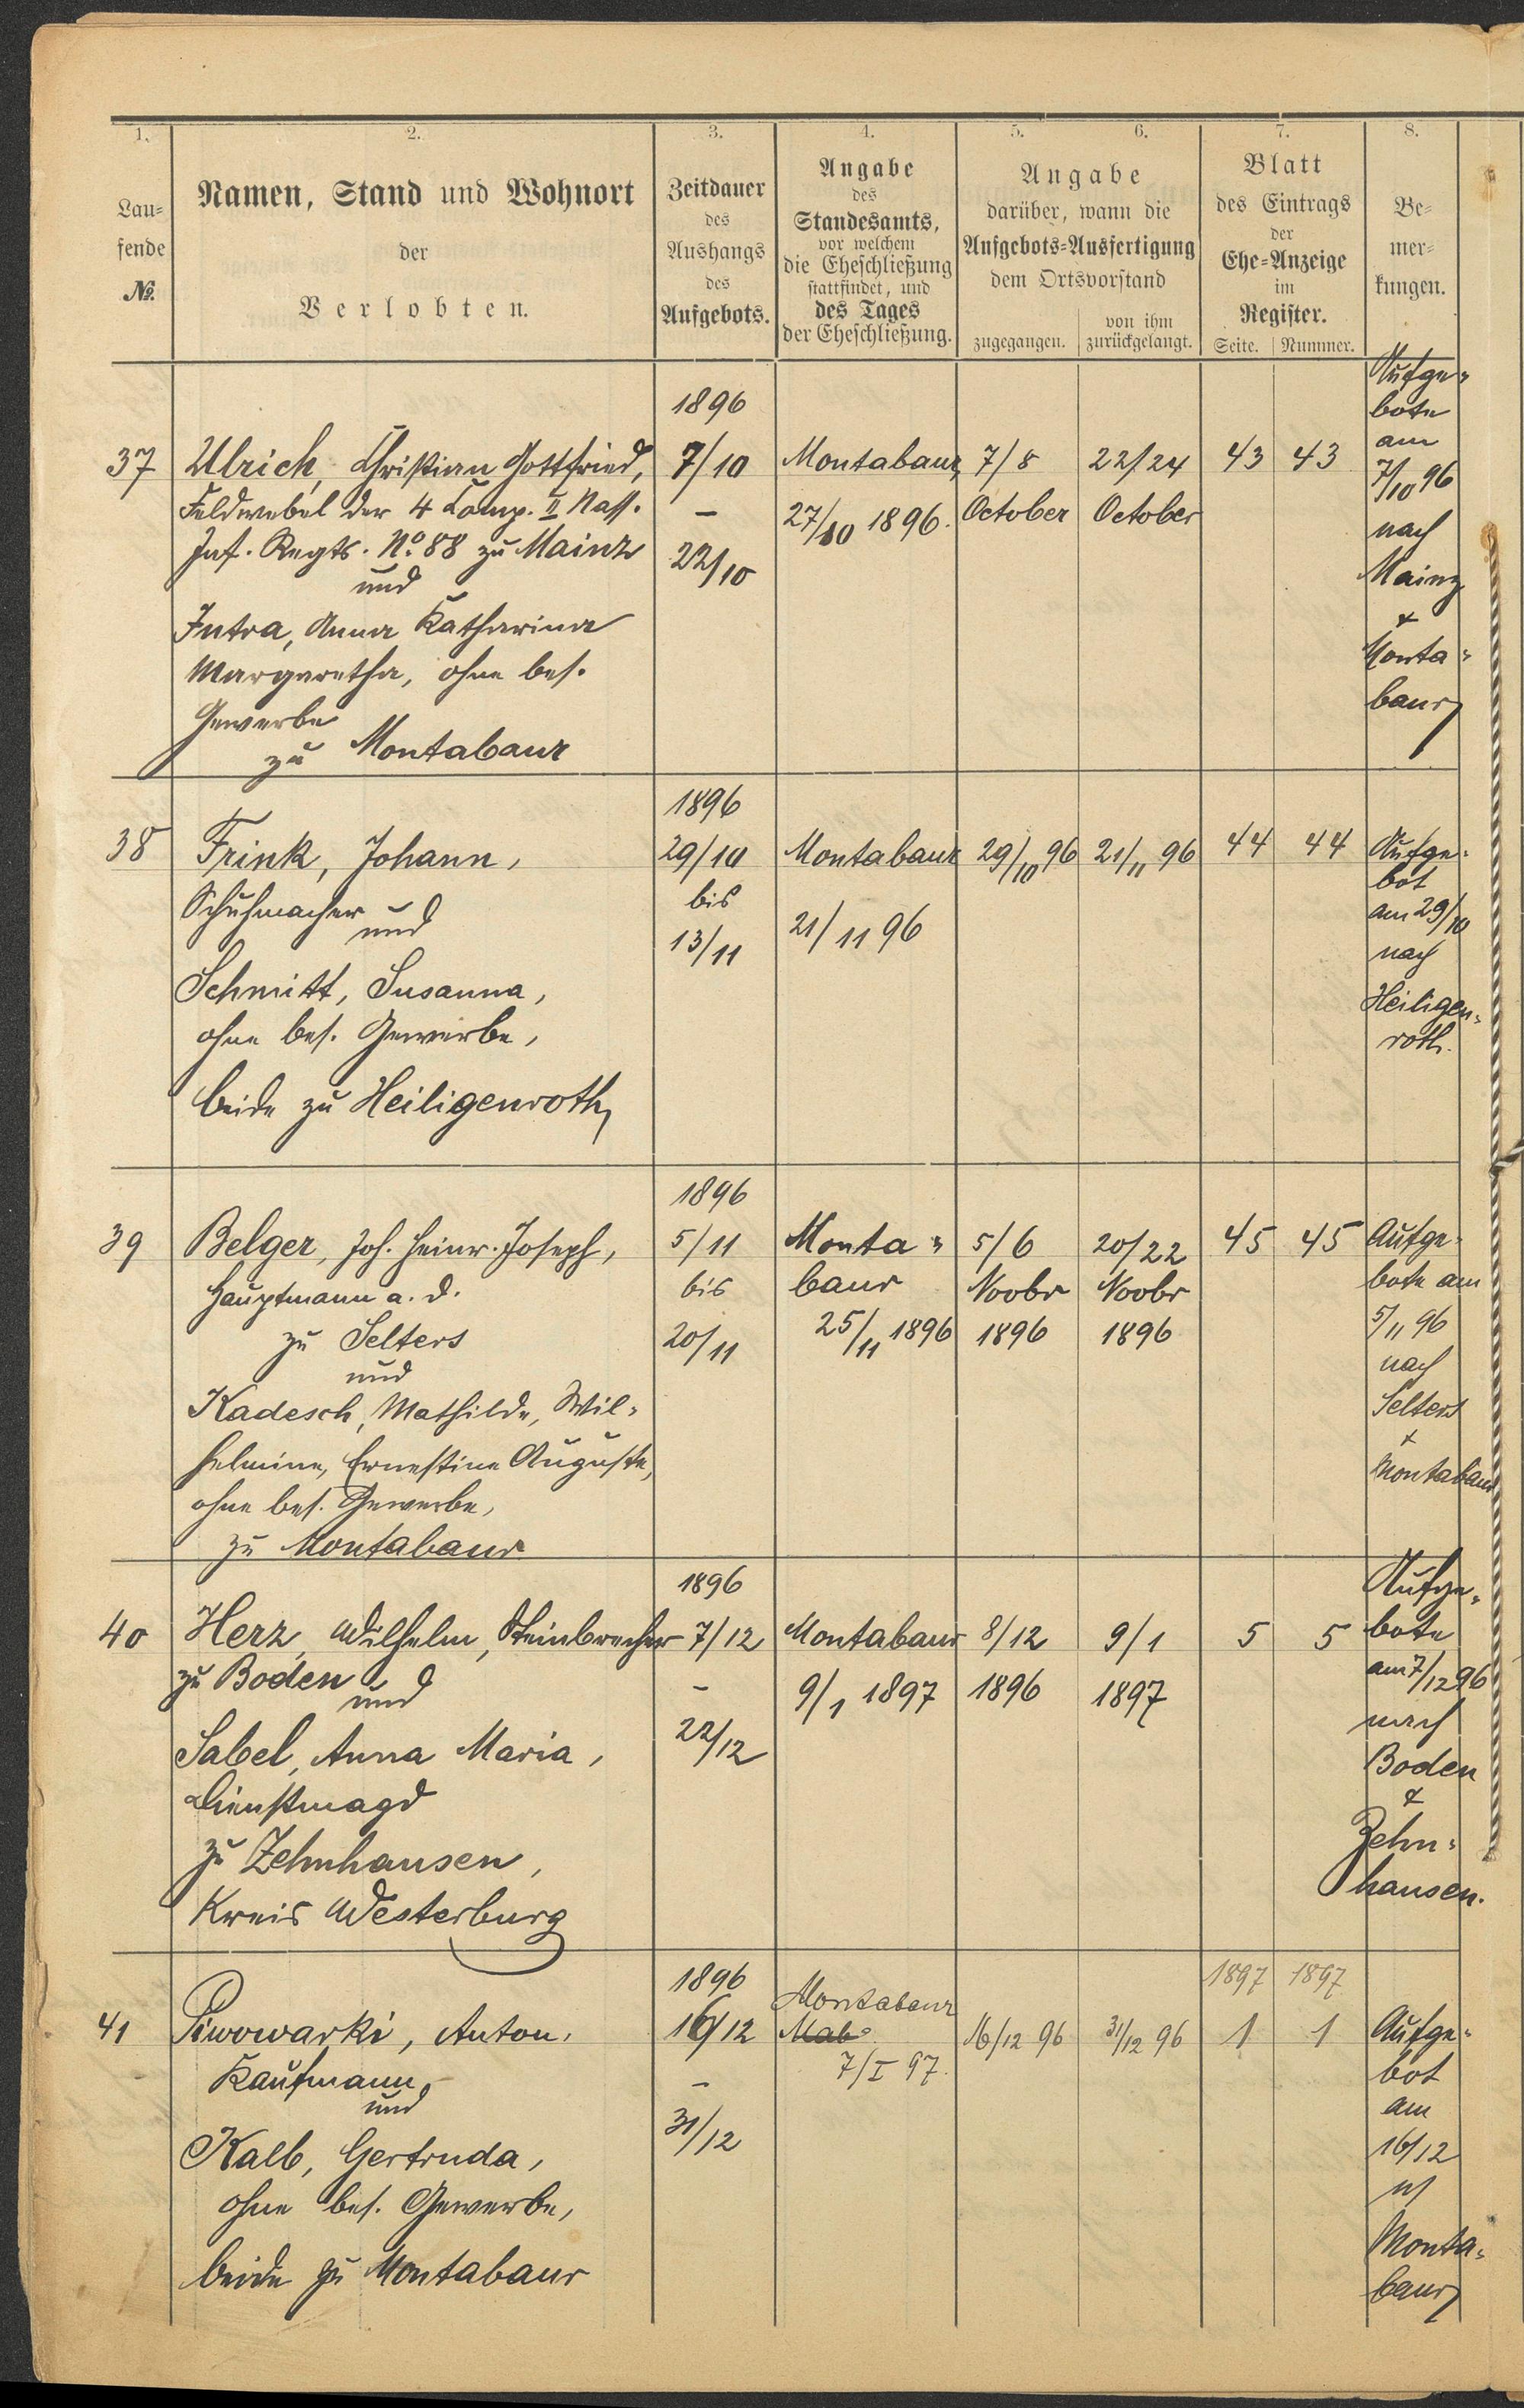 1. 2. 3. 4. 5. 6. 7. 8.
Lau-
fende
No.
Namen, Stand und Wohnort
der
Verlobten.
Zeitdauer
des
Aushangs
des
Aufgebots.
Angabe
des
Standesamts,
vor welchem
die Eheschließung
stattfindet, und
des Tages
der Eheschließung.
Angabe
darüber, wann die
Aufgebots-Ausfertigung
dem Ortsvorstand
zugegangen.
von ihm
zurückgelangt.
Blatt
des Eintrags
der
Ehe-Anzeige
im
Register.
Seite. Nummer.
Be-
mer-
kungen.
37
Ulrich, Christian Gottfried,
Feldwebel der 4 Comp. II Nass.
Inf. Regts. No. 88 zu Mainz
und
Intra, Anna Katharina
Margaretha, ohne bes.
Gewerbe
zu Montabaur
1896
7/10
-
22/10
Montabaur
27/10 1896.
7/8
October
22/24
October
43 43
Aufge-
bote
am
7/10 96
nach
Mainz
&
Monta-
baur
38
Frink, Johann,
Schuhmacher
und
Schmitt, Susanna,
ohne bes. Gewerbe,
beide zu Heiligenroth
1896
29/10
bis
13/11
Montabaur
21/11 96
29/10 96
21/11 96
44 44
Aufge-
bot
am 29/10
nach
Heiligen-
roth.
39
Belger, Joh. Heinr. Joseph,
Hauptmann a. D.
zu Selters
und
Kadesch, Mathilde, Wil-
helmine, Ernestine Auguste,
ohne bes. Gewerbe,
zu Montabaur
1896
5/11
bis
20/11
Monta-
baur
25/11 1896
5/6
Novbr
1896
20/22
Novbr
1896
45 45
Aufge-
bote am
5/11 96
nach
Selters
&
Montabaur
40
Herz, Wilhelm, Steinbrecher
zu Boden
und
Sabel, Anna Maria,
Dienstmagd
zu Zehnhausen,
Kreis Westerburg
1896
7/12
-
22/12
Montabaur
9/1 1897
8/12
1896
9/1
1897
5 5
Aufge-
bote
am 7/12 96
nach
Boden
&
Zehn-
hausen.
41
Piwowarki, Anton,
Kaufmann
und
Kalb, Gertruda,
ohne bes. Gewerbe,
beide zu Montabaur
1896
16/12
-
31/12
Montabaur
Mab
7/I 97.
16/12 96
31/12 96
1897 1897
1 1
Aufge-
bot
am
16/12
n/
Monta-
baur